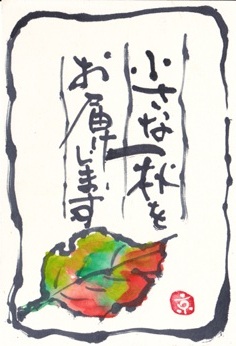 小さな秋を
お届けします
京